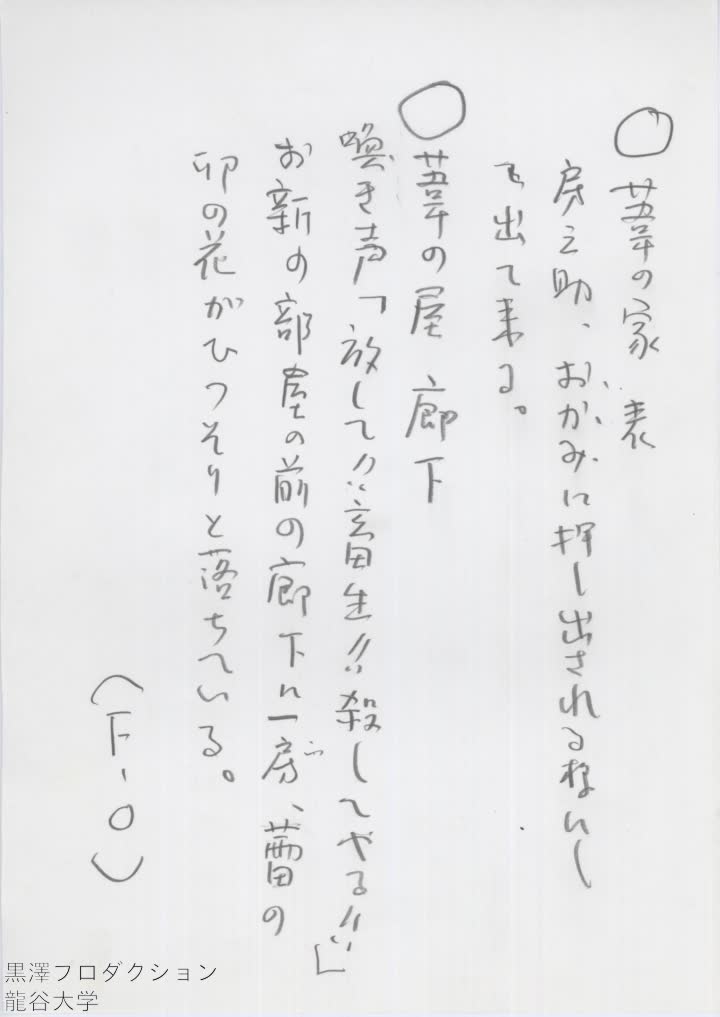 ○葦の家 表
房之助、おかみに押し出される様にし
て出て来る。
○葦の屋 廊下
喚き声「放して!!畜生!!殺してやる!!」
お新の部屋の前の廊下に一房、蕾の
卯の花がひつそりと落ちている。
(F・O)
黒澤プロダクション
龍谷大学